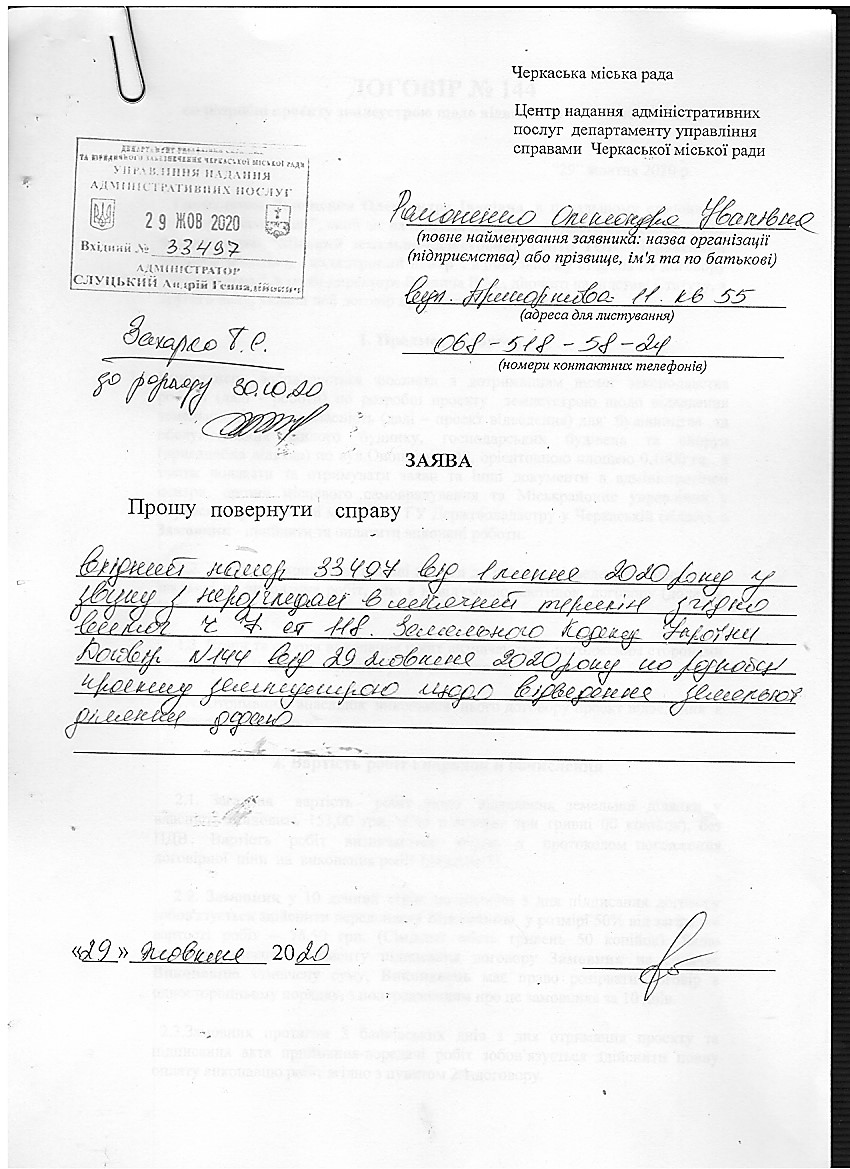 Черкаська міська рада
Центр надання адміністративних
послуг департаменту управління
справами Черкаської міської ради
ТА ЮРИДИЧНОГО ЗАБЕЗПЕЧЕННЯ ЧЕРКАСЬКОЇ МІСЬКОЇ РАДИ
УПРАВЛІННЯ НАДАННЯ
АДМІНІСТРАТИВНИХ ПОСЛУГ
29 ЖОВ 2020
Вхідний № 33497
АДМІНІСТРАТОР
СЛУЦЬКИЙ Андрій Геннадійович
Олександра Іванівна
(повне найменування заявника: назва організації
(підприємства) або прізвище, ім'я та по батькові)
вул. 11. кв 55
(адреса для листування)
068-518-58-24
(номери контактних телефонів)
Захарко Т.С.
до розгляду 30.10.20
ЗАЯВА
Прошу повернути справу
вхідний номер 33497 від 1 липня 2020 року у
звязку з нерозглядом в місячний термін згідно
вимог ч 7 ст 118. Земельного Кодексу України
Договір N144 від 29 жовтня 2020 року по розробці
проекту землеустрою щодо відведення земельної
ділянки додаю
«29» жовтня 2020